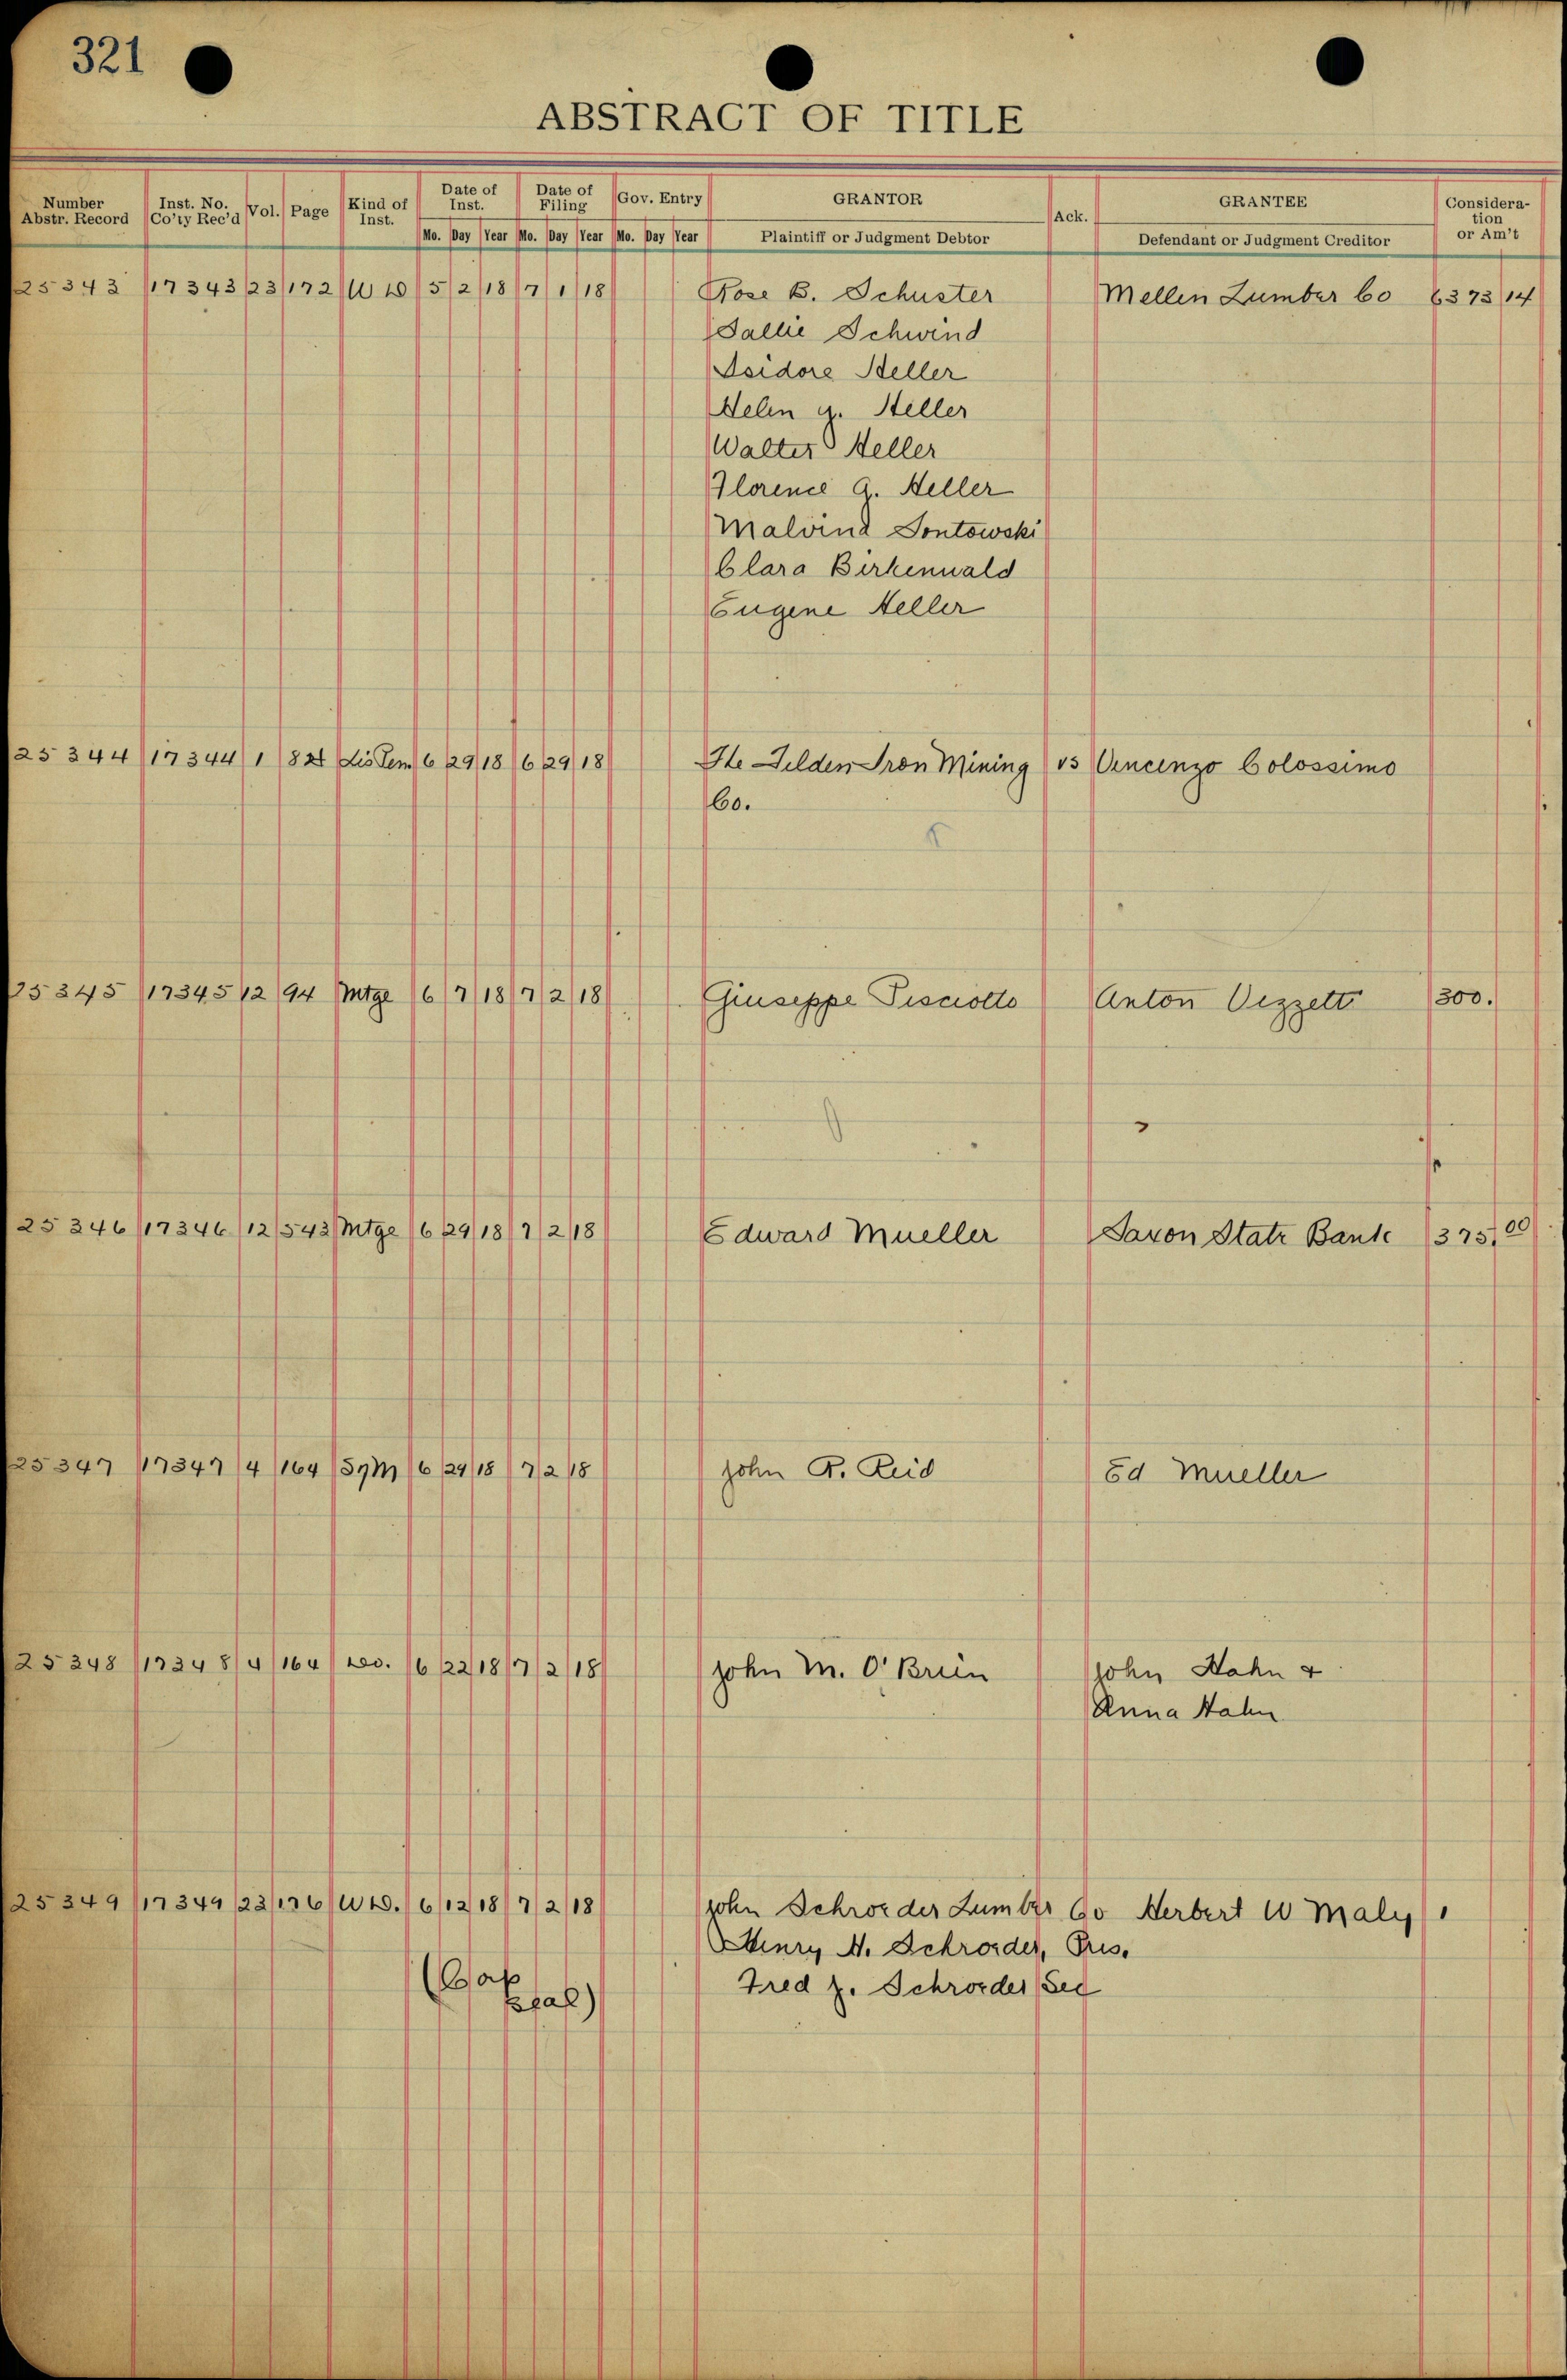 321
ABSTRACT OF TITLE
Number Abstr. Record | Inst. No. Co'ty Rec'd | Vol. | Page | Kind of Inst. | Date of Inst. | Date of Filing | Gov. Entry | GRANTOR | Ack. | GRANTEE | Consideration or Am't
Mo. Day Year Mo. Day Year Mo. Day Year Plaintiff or Judgment Debtor Defendant or Judgment Creditor
25343 17343 23 172 WD 5 2 18 7 1 18 Rose B. Schuster Mellen Lumber Co 6373 14
Sallie Schwind
Isidore Heller
Helen G. Heller
Walter Heller
Florence G. Heller
Malvina Sontowski
Clara Birkenwald
Eugene Heller
25344 17344 1 82 Lis Pen 6 29 18 6 29 18 The Iron Mining vs Vincenzo Colossimo
Co.
25345 17345 12 94 Mtge 6 7 18 7 2 18 Giuseppe Pisciotto Anton Vezzetti 300.
25346 17346 12 543 Mtge 6 29 18 7 2 18 Edward Mueller Saxon State Bank 375.00
25347 17347 4 164 6 29 18 7 2 18 John R. Reid Ed Mueller
25348 17348 4 164 Do. 6 22 18 7 2 18 John M. O'Brien John Hahn &
Anna Hahn
25349 17349 23 176 WD. 6 12 18 7 2 18 John Schroeder Lumber Co Herbert W Maly 1
Henry H. Schroeder, Pres.
(Cap Fred J. Schroeder Sec
Seal)